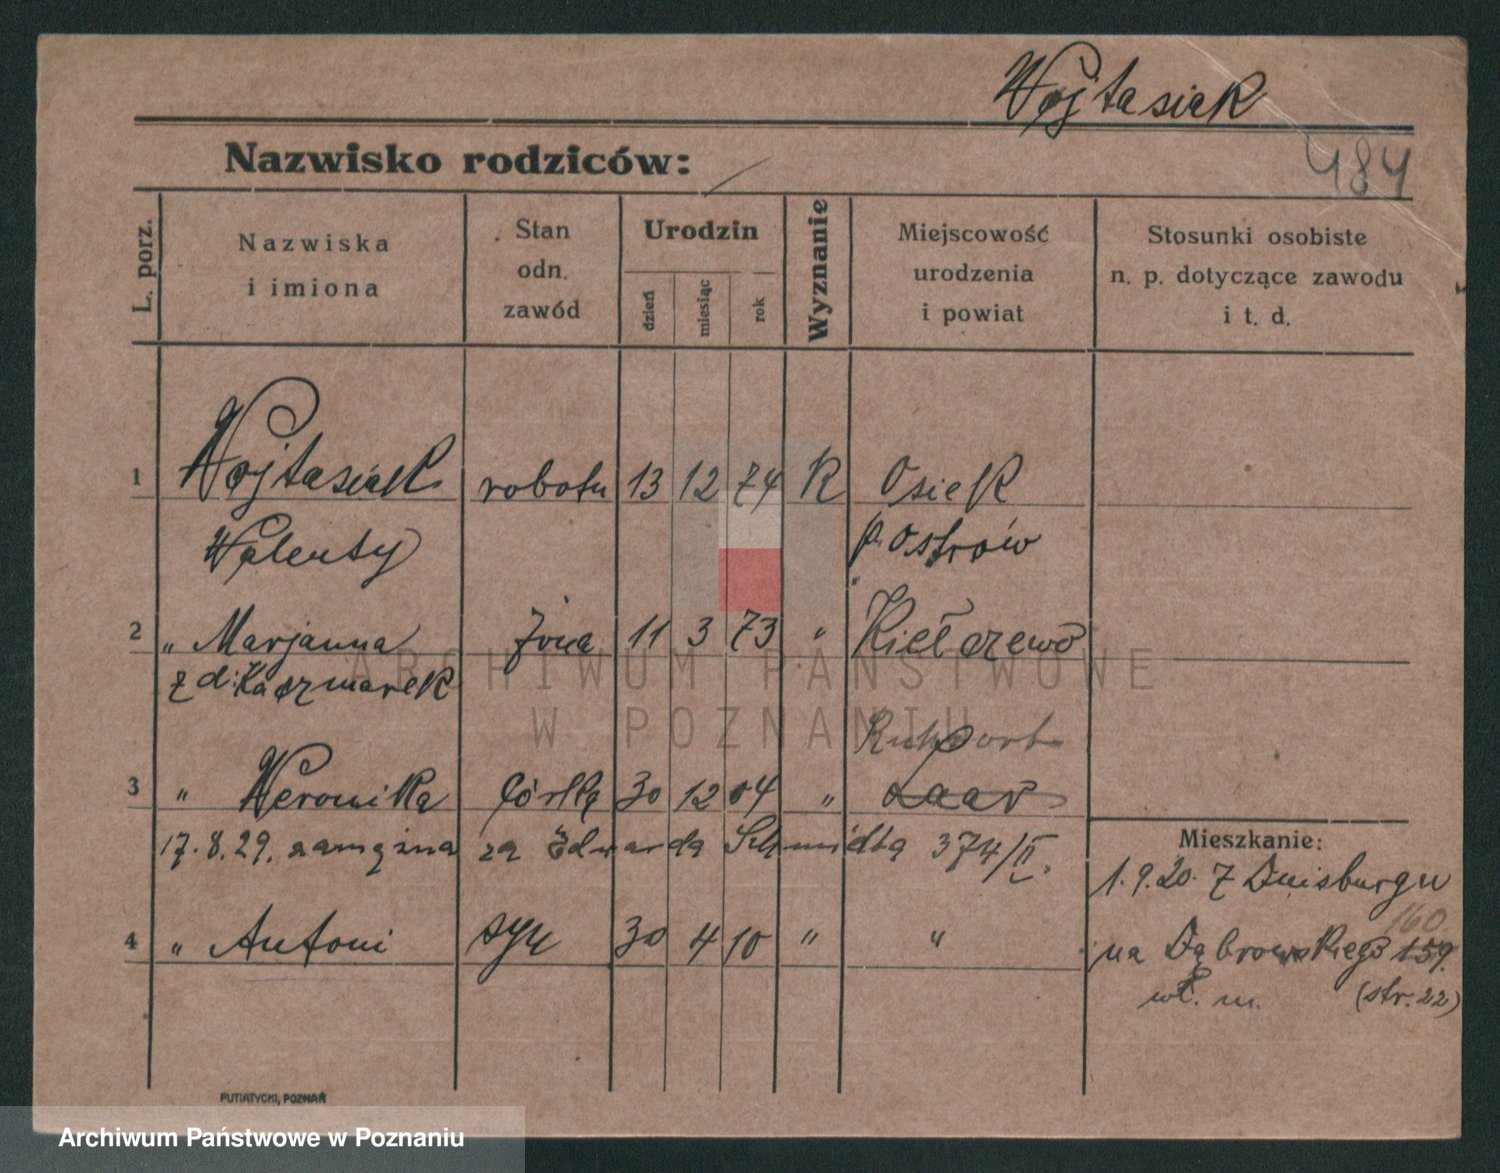 Wojtasiak
Nazwisko rodziców:
484
L. porz.
Nazwiska
i imiona
Stan
odn.
zawód
Urodzin
dzień
miesiąc
rok
Wyznanie
Miejscowość
urodzenia
i powiat
Stosunki osobiste
n. p. dotyczące zawodu
i t. d.
1 Wojtasiak robotn 13 12 74 K Osiek
Walenty p. Ostrów
2 „ Marjanna żona 11 3 73 „ Kiełczewo
z d. Kaczmarek
ARCHIWUM PAŃSTWOWE
W POZNANIU
Ruhrort
3 „ Weronika córka 30 12 04 „ Laar
17.8.29. zamężna za Edwarda Schmidta 374/II.
Mieszkanie:
1.9.20. z Duisburgu
160.
4 „ Antoni syn 30 4 10 „ „
na Dąbrowskiego 159.
wł. m. (str. 22)
PUTIATYCKI, POZNAŃ
Archiwum Państwowe w Poznaniu